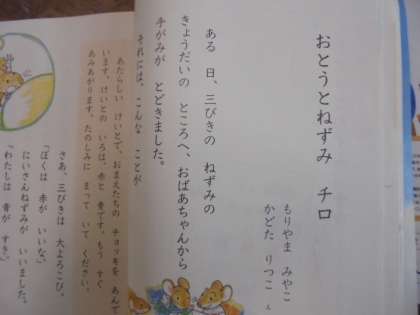 おとうとねずみ チロ
もりやま みやこ
かどた りつこ え
ある 日、三びきの ねずみの
きょうだいの ところへ、おばあちゃんから
手がみが とどきました。
それには、こんな ことが
あたらしい けいとで、おまえたちの チョッキを あんで
います。けいとの いろは、赤と 青です。もう すぐ
あみあがります。たのしみに まって いて ください。
さあ、三びきは 大よろこび。
「ぼくは 赤が いいな。」
にいさんねずみが いいました。
「わたしは 青が すき。」